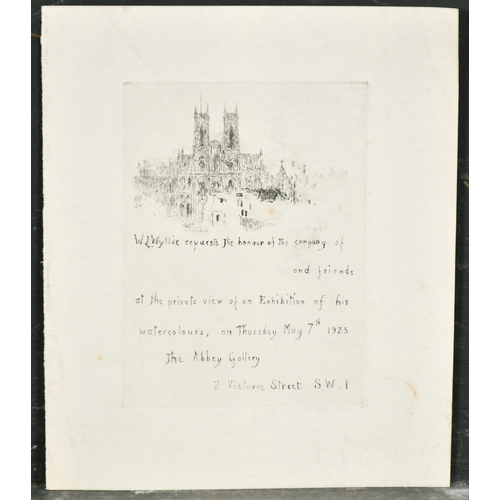 W L Wyllie requests the honour of the company of
and friends
at the private view of an Exhibition of his
watercolours, on Thursday May 7th 1925
The Abbey Gallery
2 Victoria Street SW.1